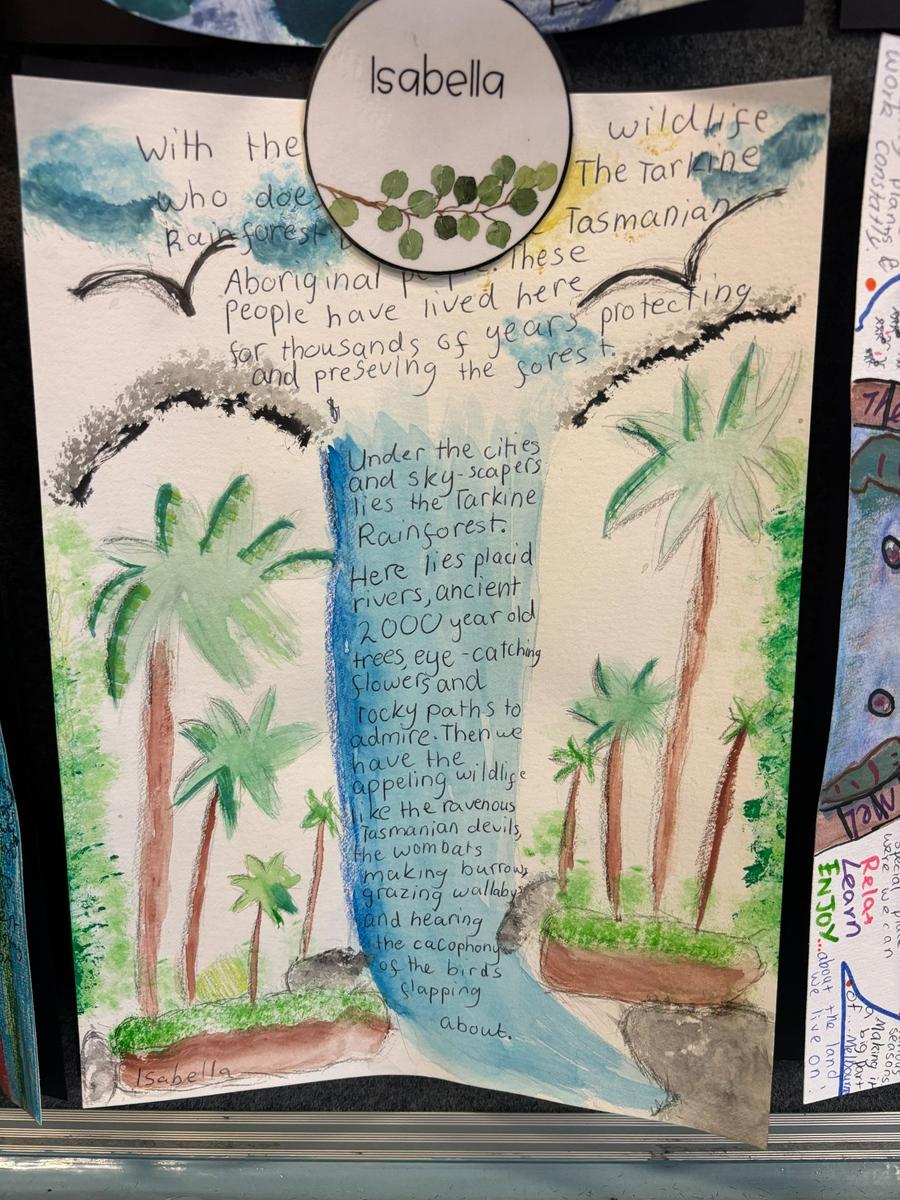 Isabella
With the wildlife
who The Tarkine
Rainforest Tasmanian
Aboriginal These
people have lived here
for thousands of years protecting
and preseving the forest.
Under the cities
and sky-scapers
lies the Tarkine
Rainforest.
Here lies placid
rivers, ancient
2000 year old
trees, eye-catching
flowers and
rocky paths to
admire. Then we
have the
appeling wildlife
like the ravenous
Tasmanian devils,
the wombats
making burrows
grazing wallabys
and hearing
the cacophony
of the birds
flapping
about.
Isabella
Relax
Learn
ENJOY...about the land
we live on!